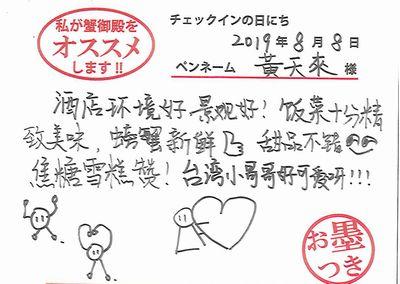 私が蟹御殿を
オススメ
します!!
チェックインの日にち
2019年8月8日
ペンネーム 黃天來 様
酒店环境好 景观好! 饭菜十分精
致美味, 螃蟹新鲜 甜品不错
焦糖雪糕赞! 台湾小哥哥好可爱呀!!!
お墨
つき